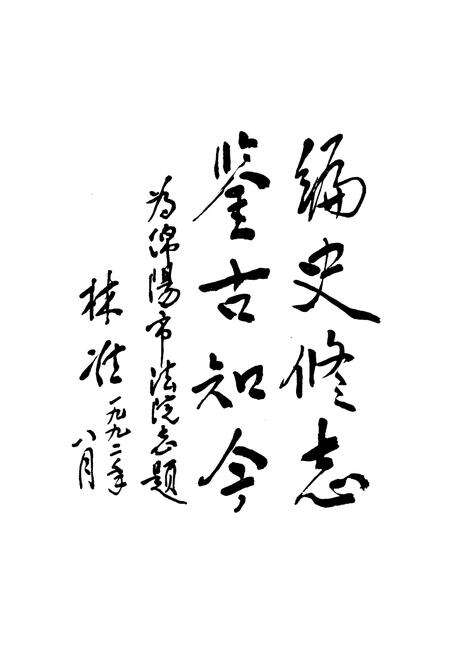 编史修志
鉴古知今
为绵陽市法院志题
林准
一九九二年
八月